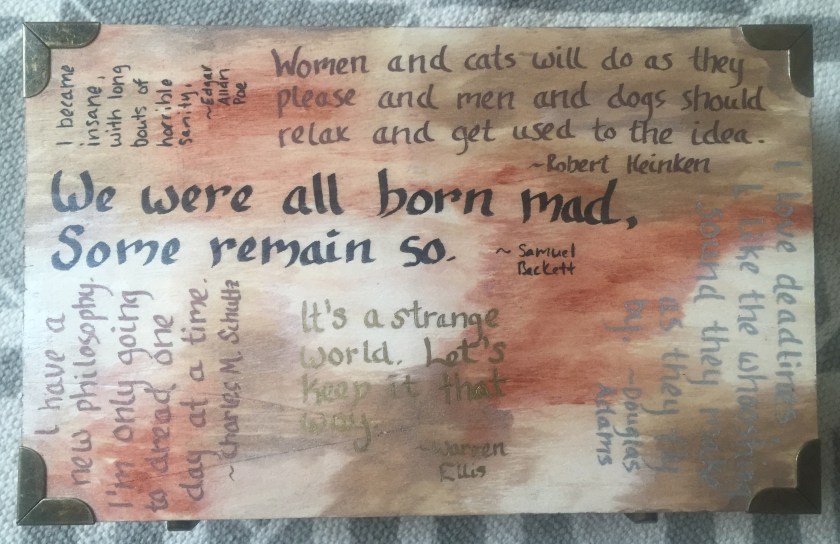 I became
insane,
with long
bouts of
horrible
sanity.
~Edgar
Allan
Poe
Women and cats will do as they
please and men and dogs should
relax and get used to the idea.
~Robert Heinken
We were all born mad,
Some remain so.
~ Samuel
Beckett
I have a
new philosophy.
I'm only going
to dread one
day at a time.
~Charles M. Schultz
It's a strange
world. Let's
keep it that
way.
~Warren
Ellis
I love deadlines
I like the
sound they
as they fly
by. ~Douglas
Adams